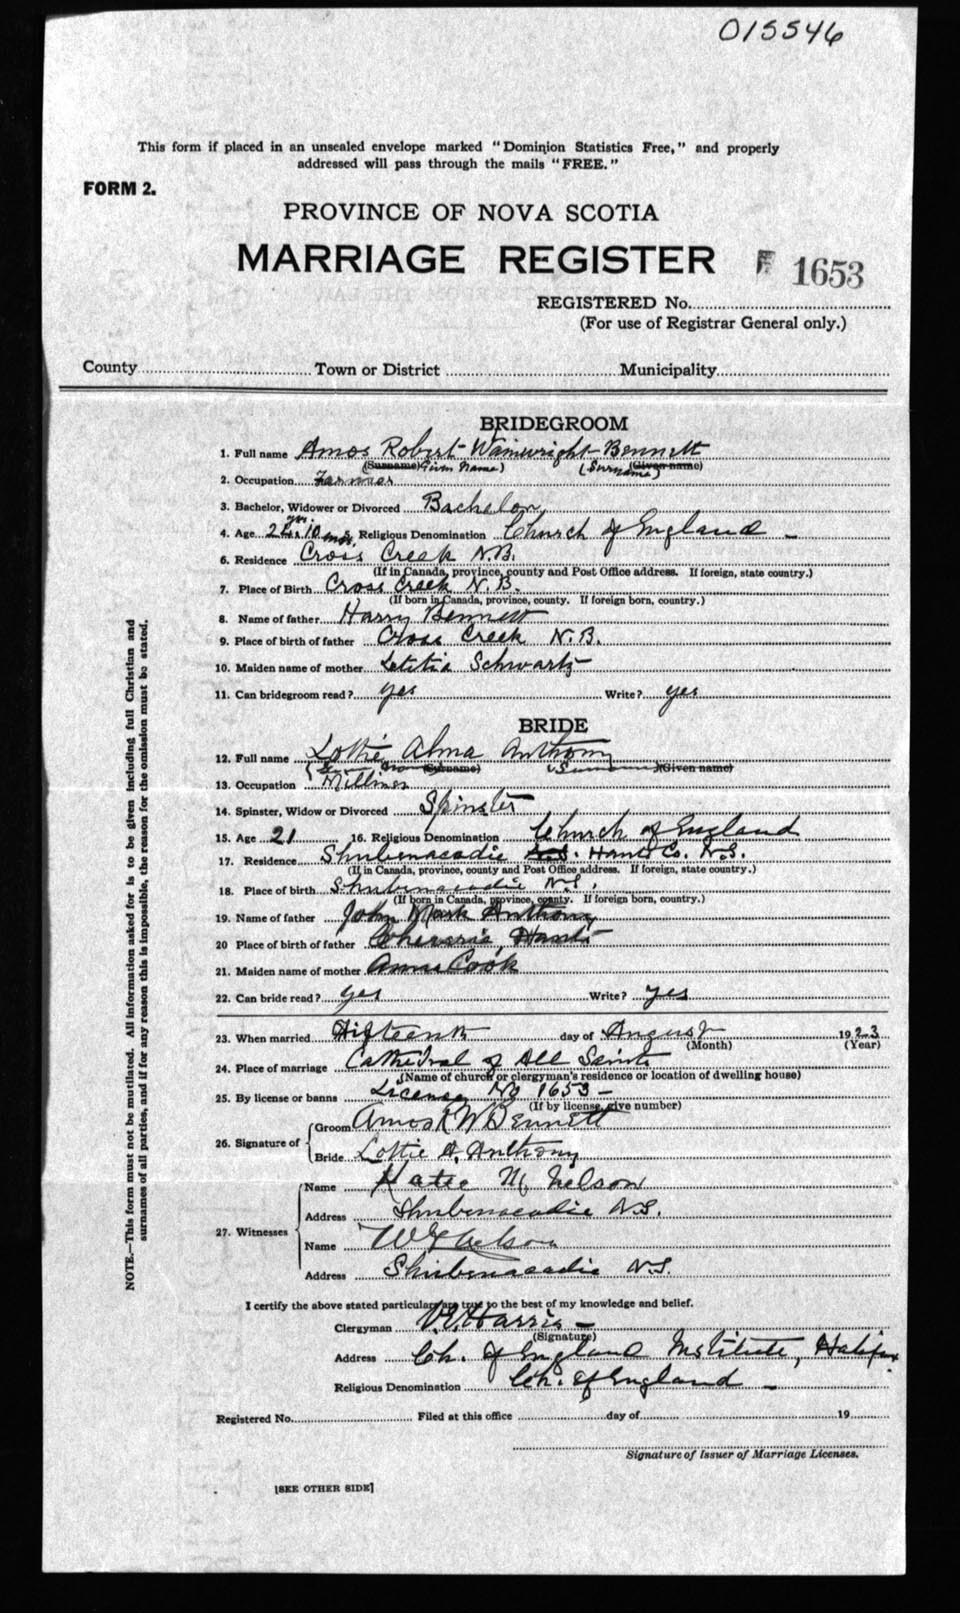 015546
This form if placed in an unsealed envelope marked "Dominion Statistics Free," and properly
addressed will pass through the mails "FREE."
FORM 2.
PROVINCE OF NOVA SCOTIA
MARRIAGE REGISTER 1653
REGISTERED No.
(For use of Registrar General only.)
County Town or District Municipality
BRIDEGROOM
1. Full name Amos Robert Wainwright Bennett
(Surname) Given Name) (Surname) (Given name)
2. Occupation Farmer
3. Bachelor, Widower or Divorced Bachelor
4. Age 24 yrs. 10 mos. Religious Denomination Church of England
6. Residence Cross Creek N.B.
(If in Canada, province, county and Post Office address. If foreign, state country.)
7. Place of Birth Cross Creek N.B.
(If born in Canada, province, county. If foreign born, country.)
8. Name of father Harry Bennett
9. Place of birth of father Cross Creek N.B.
10. Maiden name of mother Letitia Schwartz
11. Can bridegroom read? yes Write? yes
BRIDE
12. Full name Lottie Alma Anthony
(Surname) (Given name)
13. Occupation Milliner
14. Spinster, Widow or Divorced Spinster
15. Age 21 16. Religious Denomination Church of England
17. Residence Shubenacadie N.S. Hants Co. N.S.
(If in Canada, province, county and Post Office address. If foreign, state country.)
18. Place of birth Shubenacadie N.S.
(If born in Canada, province, county. If foreign born, country.)
19. Name of father John Mark Anthony
20 Place of birth of father Cheverie, Hants
21. Maiden name of mother Annie Cook
22. Can bride read? yes Write? yes
23. When married Fifteenth day of August 1923
(Month) (Year)
24. Place of marriage Cathedral of All Saints
(Name of church or clergyman's residence or location of dwelling house)
25. By license or banns License No 1653
(If by license, give number)
26. Signature of Groom Amos R W Bennett
Bride Lottie A. Anthony
27. Witnesses Name Katie M Nelson
Address Shubenacadie N.S.
Name Nelson
Address Shubenacadie N.S.
I certify the above stated particulars are true to the best of my knowledge and belief.
Clergyman V.E. Harris
(Signature)
Address Ch. of England Institute, Halifax
Religious Denomination Ch. of England
Registered No. Filed at this office day of 19
Signature of Issuer of Marriage Licenses.
[SEE OTHER SIDE]
NOTE.—This form must not be mutilated. All information asked for is to be given including full Christian and
surnames of all parties, and if for any reason this is impossible, the reason for the omission must be stated.